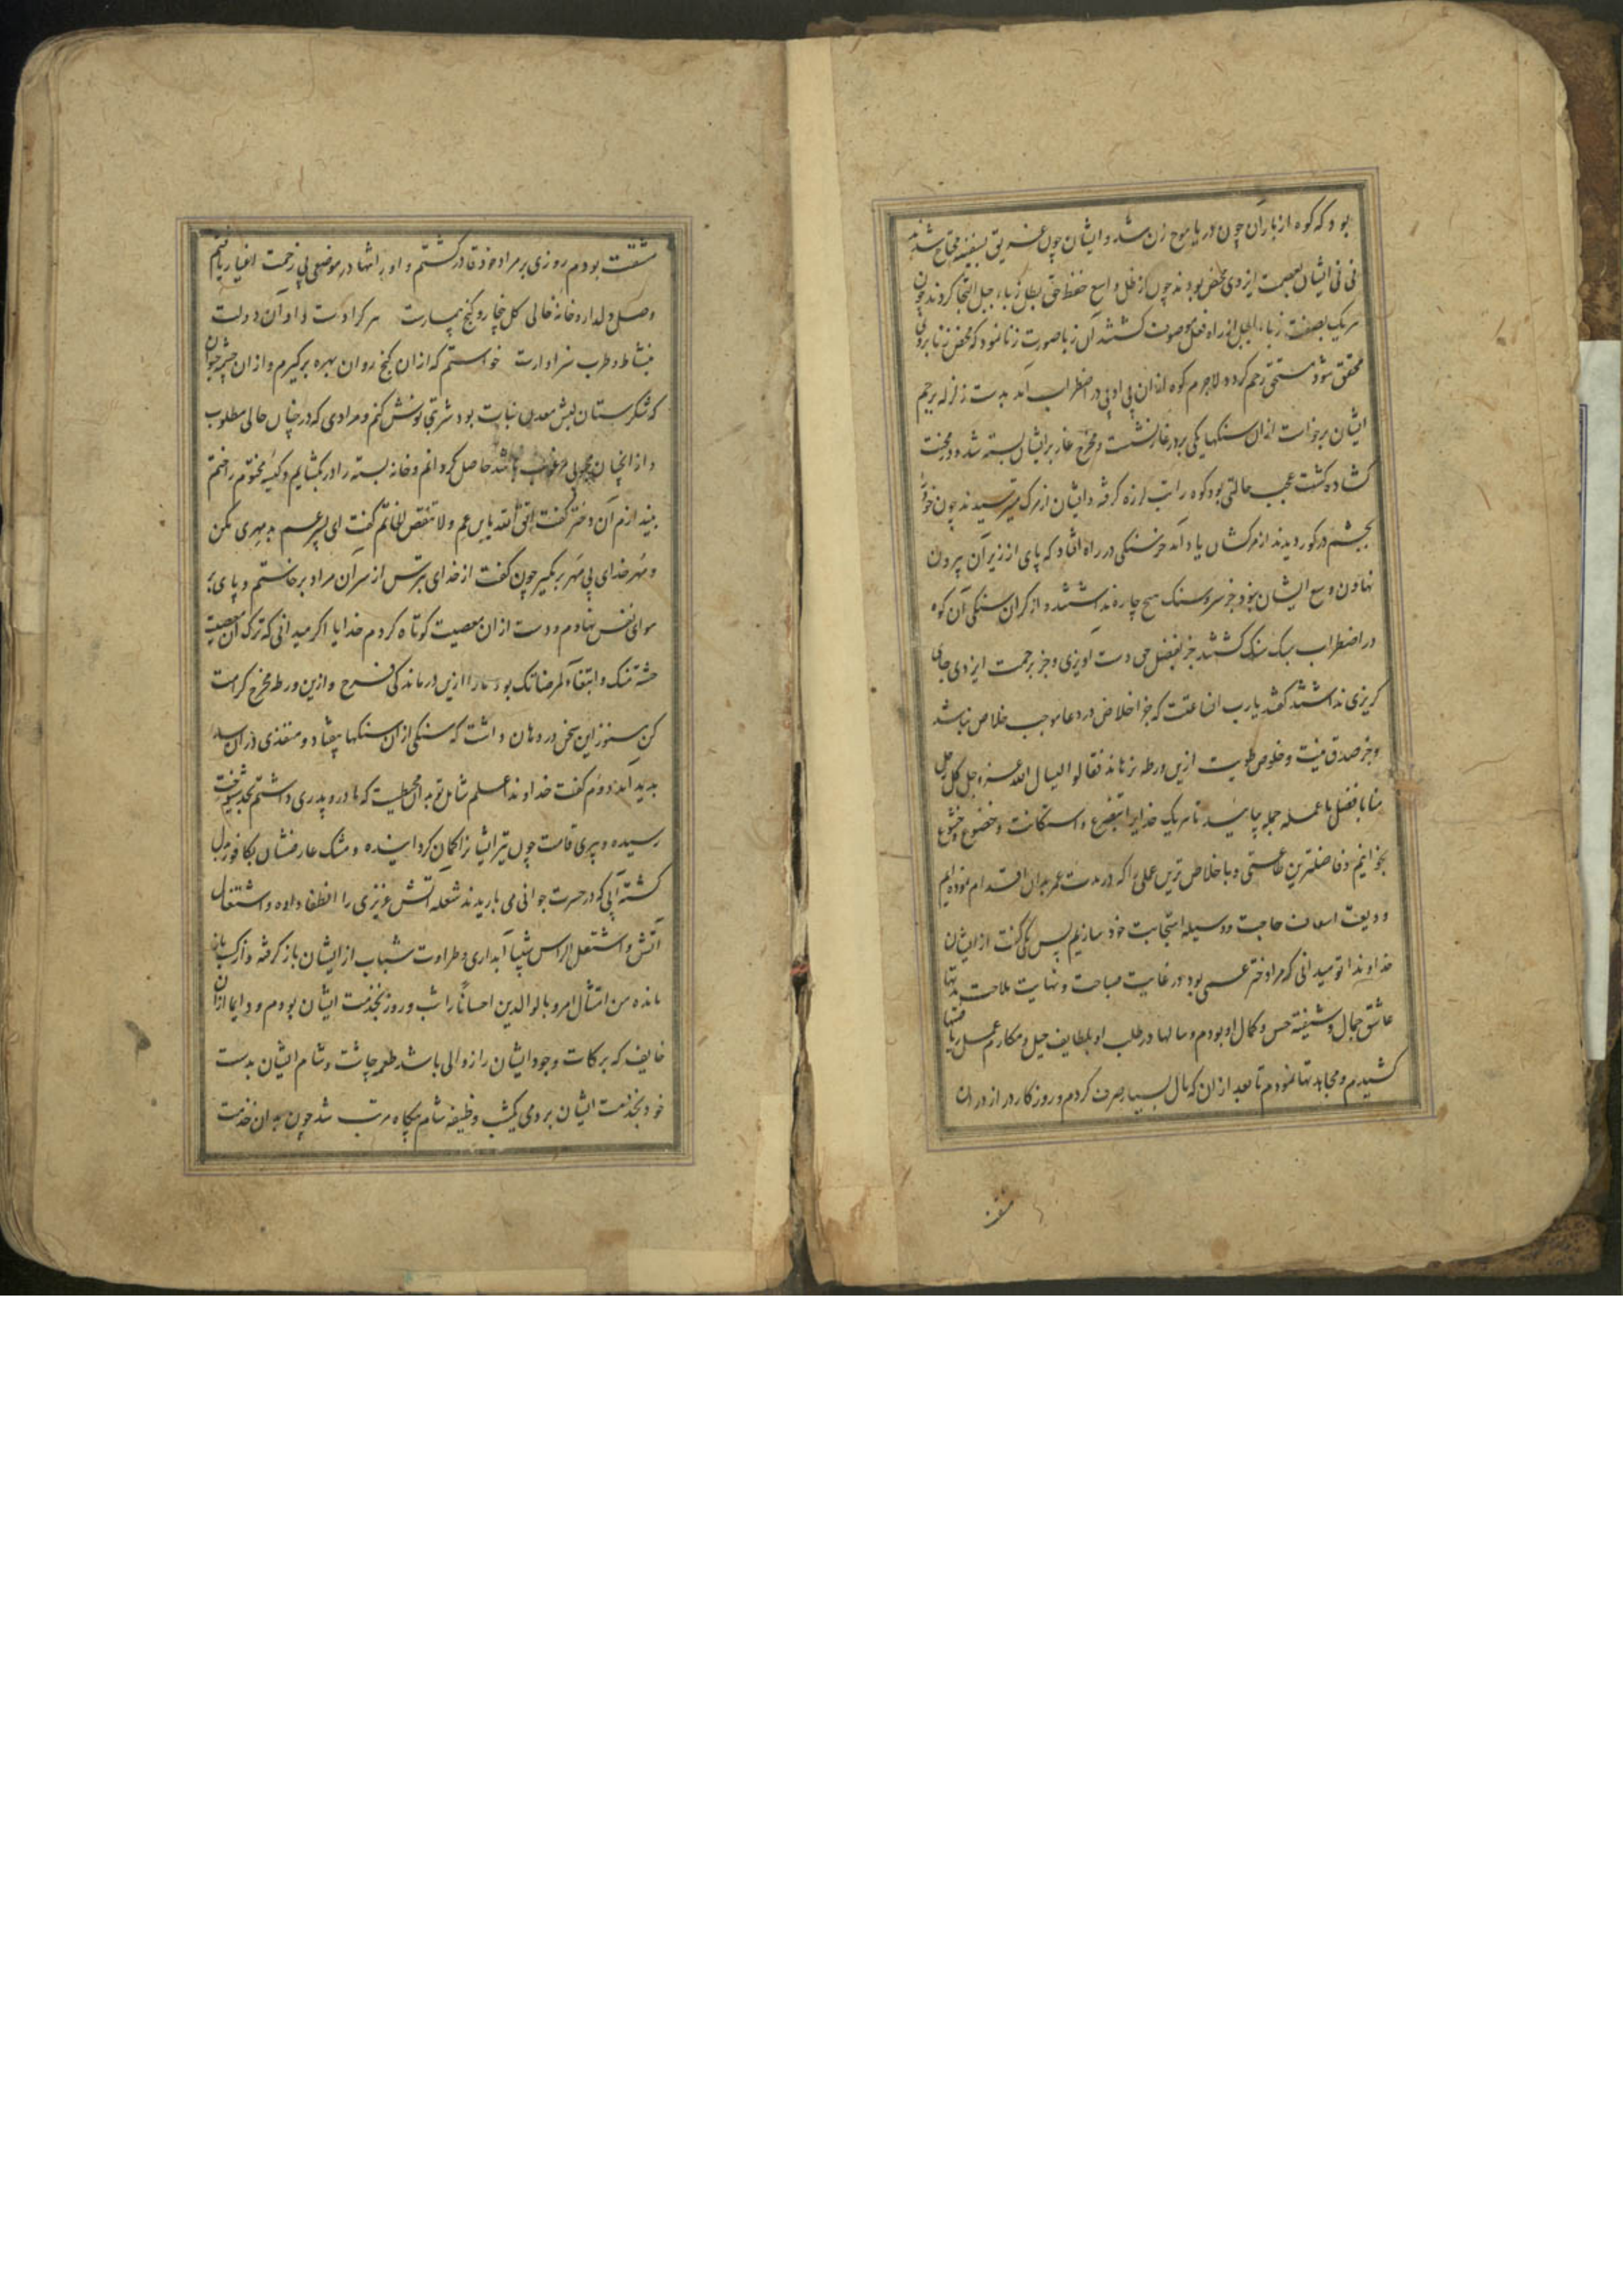 بود که کوه از باران چون دریا موج زن شد و ایشان چون غریق بسفینه محتاج شدند
نی نی ایشان بعصمت ایزدی محض بودند چون از فضل واسع حفظ حق بظل زباء جبل التجا کردند چون
هر یک بصفت زباء الجبل از راه فعل موصوف کشتند آن زبا صورت زنا نمود که محض زنا بروی
محقق شود مستحق رجم کردد لاجرم کوه از ان بی ادبی در اضطراب آمد بدست زلزله برجم
ایشان برخواست از ان سنکها یکی بر در غار نشست و مخرج غار بر ایشان بسته شد و در محنت
کشاده کشت عجب حالتی بود کوه را تب لرزه کرفته و ایشان از مرک میترسیدند چون خود را
بچشم در کور دیدند از مرکشان یاد آمد خرسنکی در راه افتاد که پای از زیر آن بیرون
نهادن وسع ایشان نبود جز سر و سنک هیچ چاره نداشتند از کران سنکی آن کوه
در اضطراب سبک سنک کشتند جز بفضل حق دست اویزی و جز برحمت ایزدی جای
کریزی نداشتند کفتند یارب ان عقت که جز اخلاص در دعا موجب خلاص نباشد
و جز صدق نیت و خلوص طویت ازین ورطه نرهاند فقالوا لیسال الله عز و جل کل رجل
منا بافضل ما عمله جمله بیایید تا هر یک خدایرا بتضرع و استکانت و خضوع و خشوع
بخوانیم و فاضلترین طاعتی و با خلاص ترین عملی را که در مدت عمر بدان اقدام نموده ایم
ودیعت اسعاف حاجت و وسیله استجابت خود سازیم پس یکی کفت از ایشان
خداوندا تو میدانی که مرا دختر عمی بود در غایت صباحت و نهایت ملاحت مدتها
عاشق جمال و شیفته حسن و کمال او بودم و سالها در طلب او بلطایف حیل و مکارم عمل ریاضتها
کشیدم و مجاهدتها نمودم تا بعد از ان که مال بسیار صرف کردم و روزکار دراز در ان
مشقت
مشقت بودم روزی بر مراد خود قادر کشتم و او را تنها در موضعی بی زحمت اغیار یافتم
وصل دلدار و خانه خالی کل بی خار و کنج بی مارست هر کرا دست داد آن دولت
بنشاط و طرب سزاوارست خواستم که از ان کنج روان بهره برکیرم و از ان چشمه حیوان
که شکرستان لبش معدن نبات بود شربتی نوش کنم و مرادی که در چنان حالی مطلوب
و از انچنان محبوبی مرغوب باشد حاصل کردانم و خانه بسته را در بکشایم و کیسه مختوم را ختم
بیندازم آن دختر کفت اتق الله یابن عم و لا تفض الخاتم کفت ای پسر عم بد مهری مکن
و مهر خدای بی مهر برمکیر چون کفت از خدای بترس از سر ان مراد برخاستم و پای بر
هوای نفس نهادم و دست از ان معصیت کوتاه کردم خدایا اکر میدانی که ترک آن معصیت
خشیة منک و ابتغاء لمرضاتک بود ما را ازین درماندکی فرح و ازین ورطه مخرج کرامت
کن هنوز این سخن در دهان داشت که سنکی از ان سنکها بیفتاد و منفذی در ان سد
بدید آمد دوم کفت خداوندا علم شامل تو بدان محیطست که مادر و پدری داشتم بحد شیخوخت
رسیده و پیری قامت چون تیر ایشانرا کمان کردانیده و مشک عارضشان بکافور بدل
کشته آبی که در حسرت جوانی می باریدند شعله اتش غریزی را انطفا داده و اشتعال
آتش و اشتعل الراس شیبا آبداری و طراوت شباب از ایشان باز کرفته و از کسب باز
مانده من امتثال امر و بالوالدین احسانا را شب و روز بخدمت ایشان بودم و دایما از ان
خایف که برکات وجود ایشان را زوالی باشد طعمه چاشت و شام ایشان بدست
خود بخدمت ایشان بردمی یکشب وظیفه شام بیکاه مرتب شد چون بدان خدمت